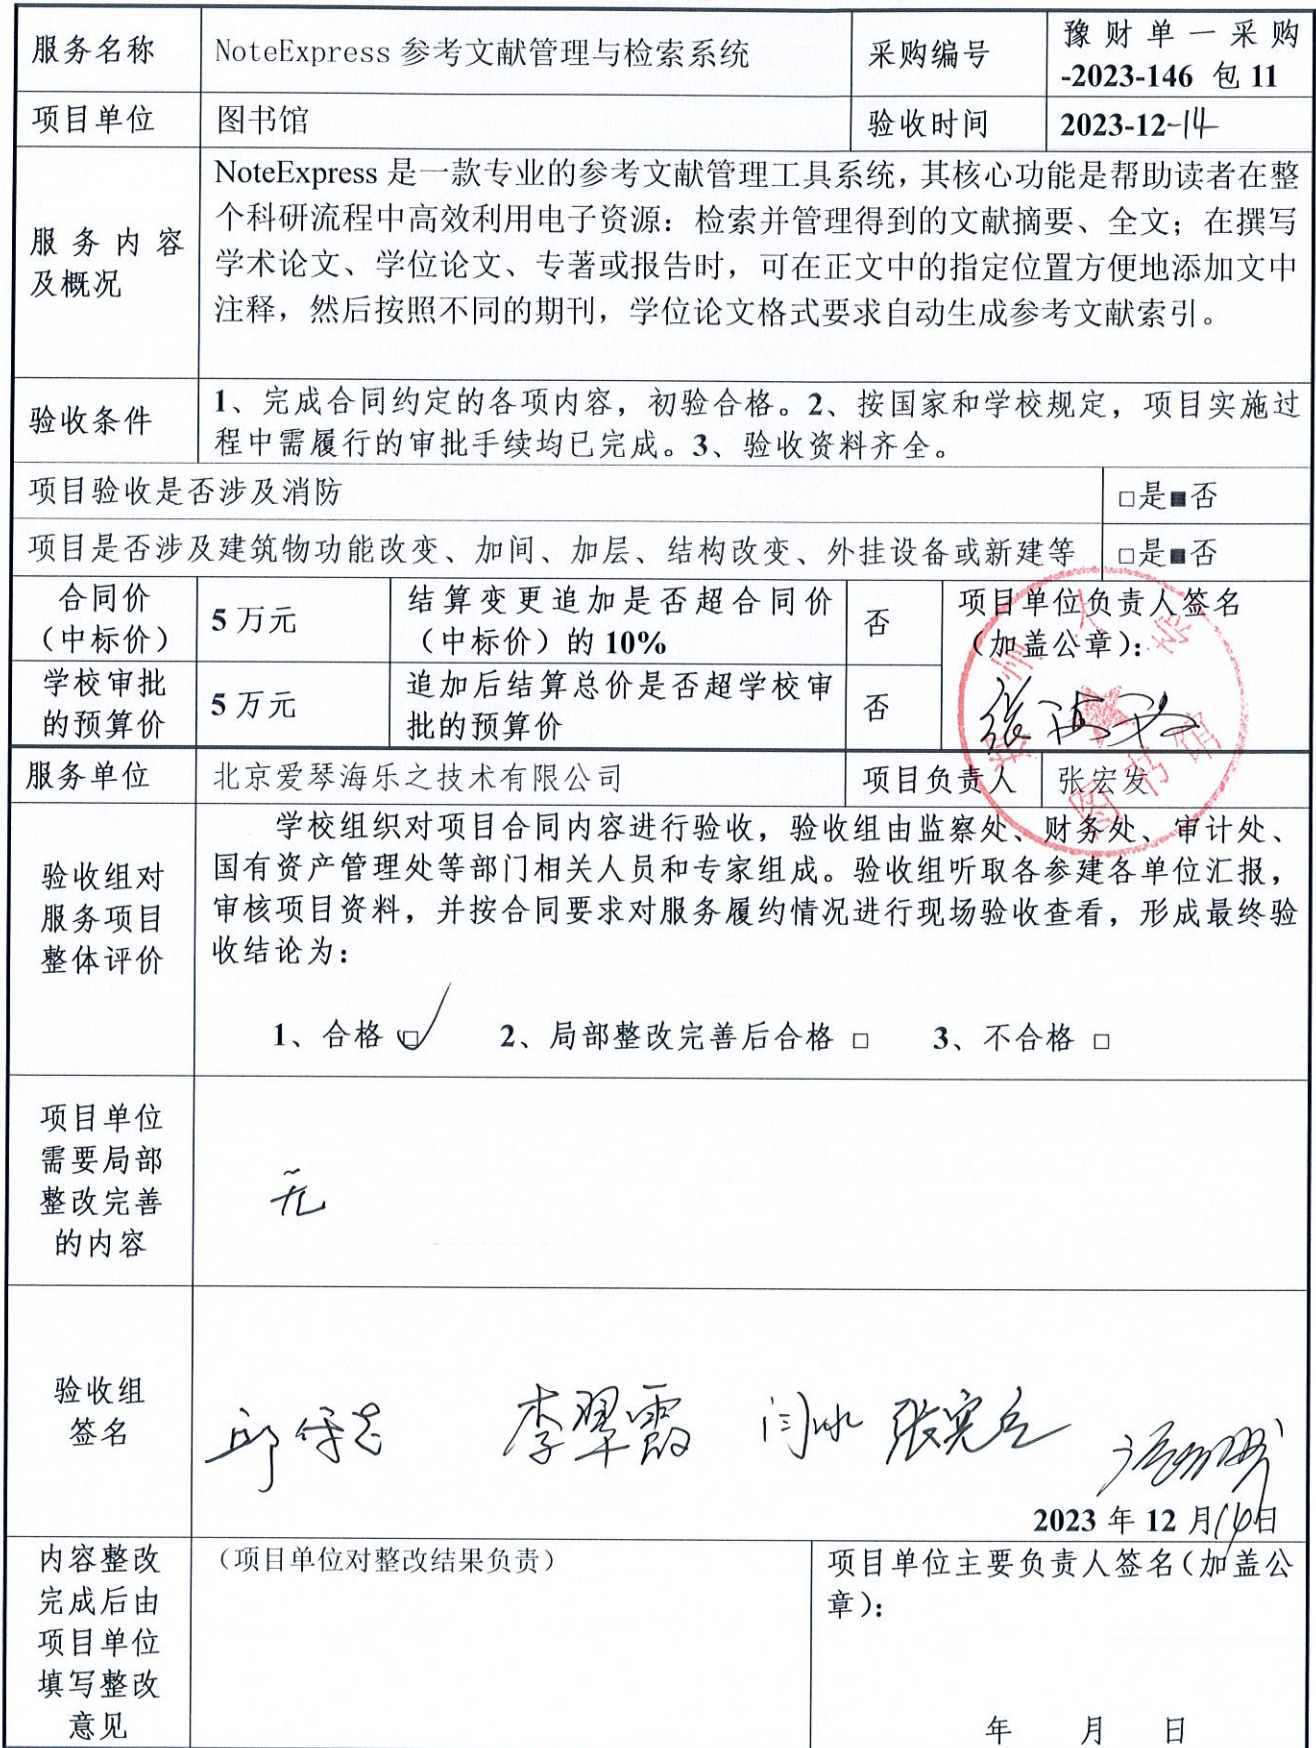 服务名称
NoteExpress 参考文献管理与检索系统
采购编号
豫财单一采购
-2023-146 包 11
项目单位
图书馆
验收时间
2023-12-14
服务内容
及概况
NoteExpress 是一款专业的参考文献管理工具系统，其核心功能是帮助读者在整
个科研流程中高效利用电子资源：检索并管理得到的文献摘要、全文；在撰写
学术论文、学位论文、专著或报告时，可在正文中的指定位置方便地添加文中
注释，然后按照不同的期刊，学位论文格式要求自动生成参考文献索引。
验收条件
1、完成合同约定的各项内容，初验合格。2、按国家和学校规定，项目实施过
程中需履行的审批手续均已完成。3、验收资料齐全。
项目验收是否涉及消防
□是■否
项目是否涉及建筑物功能改变、加间、加层、结构改变、外挂设备或新建等
□是■否
合同价
（中标价）
5 万元
结算变更追加是否超合同价
（中标价）的 10%
否
项目单位负责人签名
（加盖公章）：
学校审批
的预算价
5 万元
追加后结算总价是否超学校审
批的预算价
否
服务单位
北京爱琴海乐之技术有限公司
项目负责人
张宏发
验收组对
服务项目
整体评价
学校组织对项目合同内容进行验收，验收组由监察处、财务处、审计处、
国有资产管理处等部门相关人员和专家组成。验收组听取各参建各单位汇报，
审核项目资料，并按合同要求对服务履约情况进行现场验收查看，形成最终验
收结论为：
1、合格 □√ 2、局部整改完善后合格 □ 3、不合格 □
项目单位
需要局部
整改完善
的内容
无
验收组
签名
李翠霞 闫冰 张宪立
2023 年 12 月 14 日
内容整改
完成后由
项目单位
填写整改
意见
（项目单位对整改结果负责）
项目单位主要负责人签名（加盖公
章）：
年 月 日